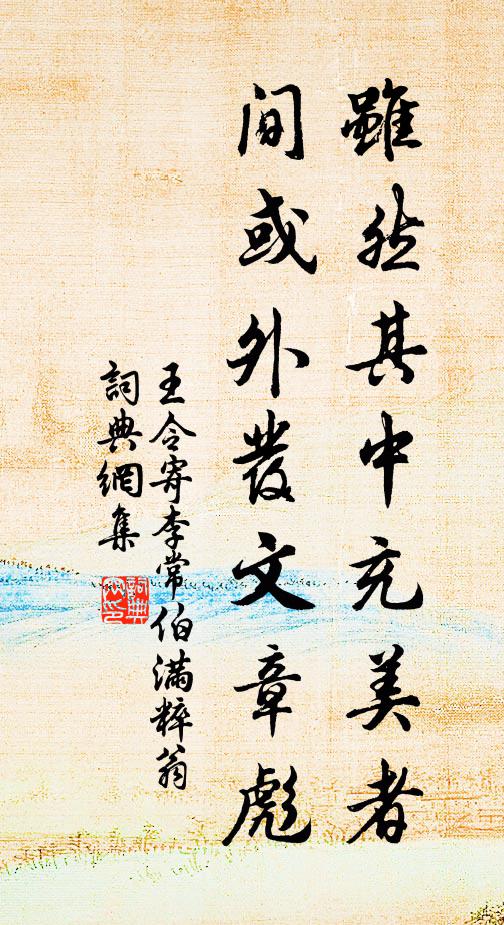 雖然其中充美者
間或外發文章彪
王令寄李常伯滿粹翁
詞典網集